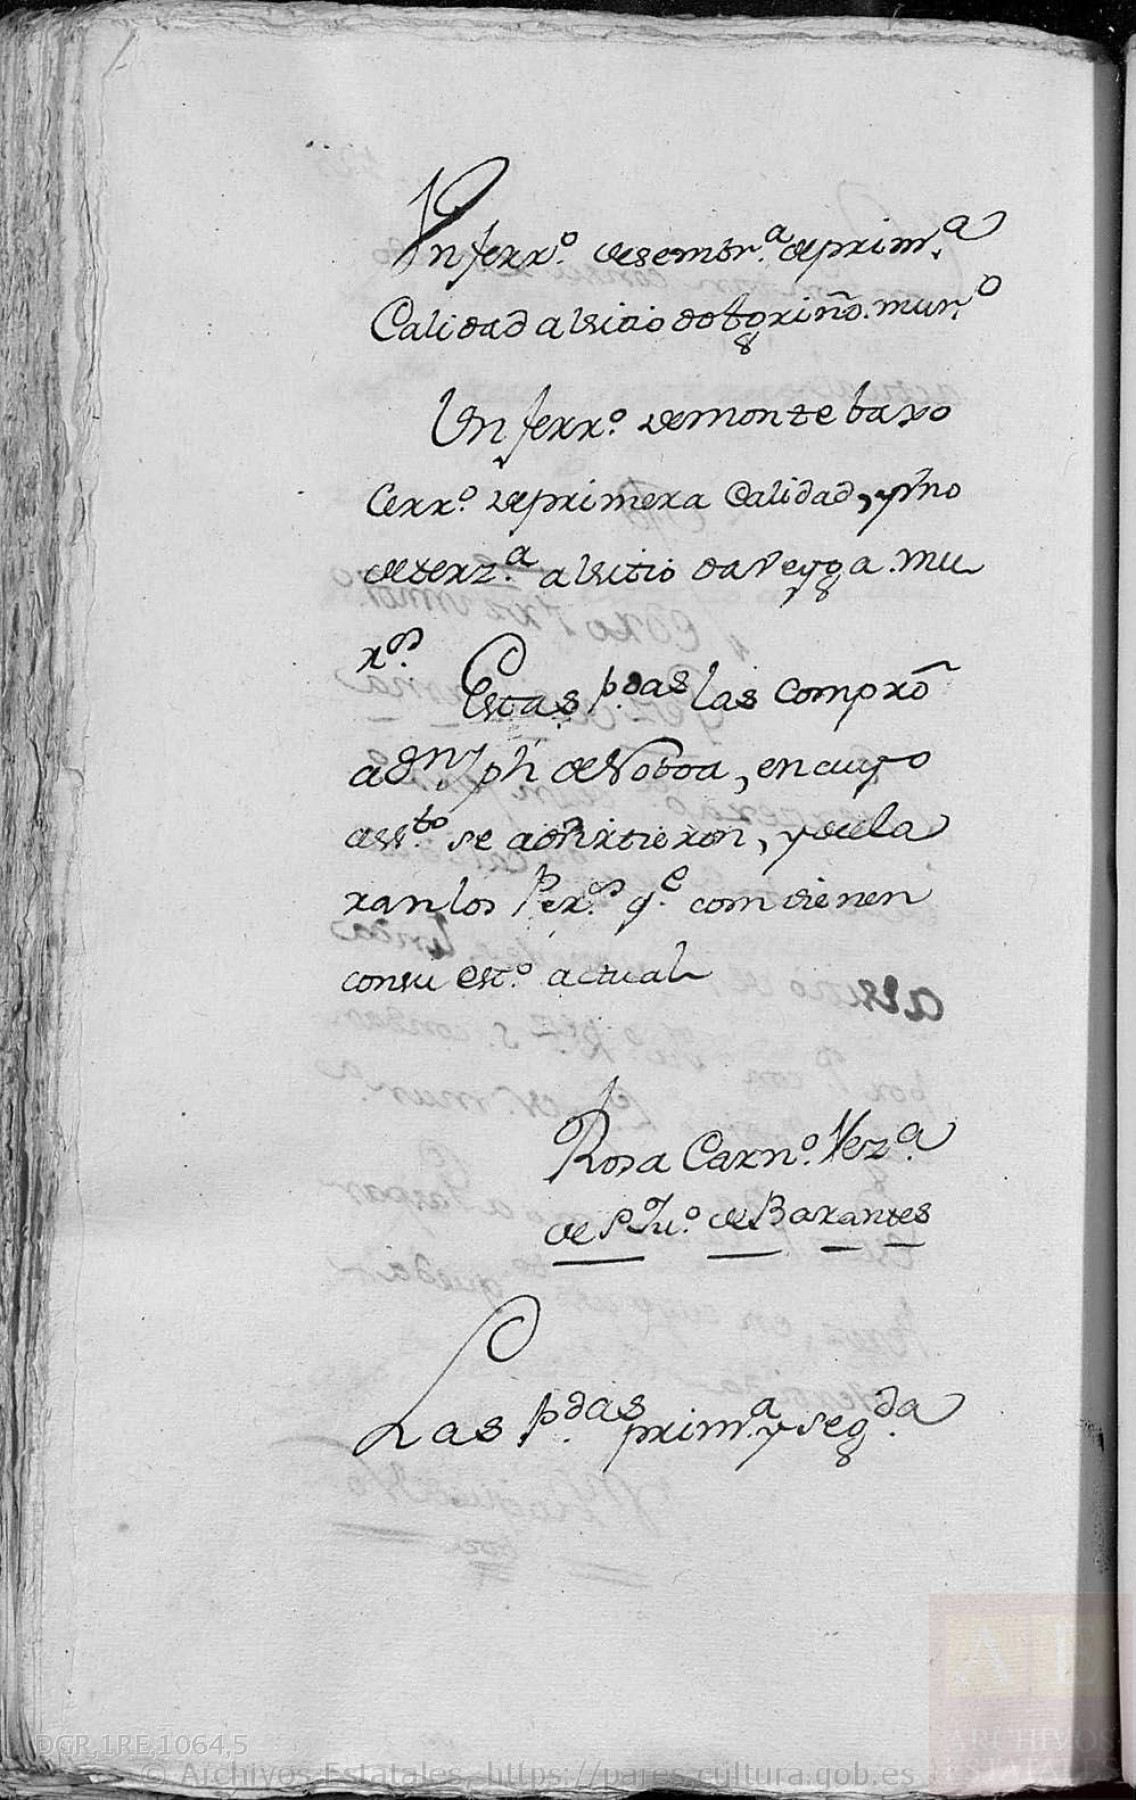 Un ferr.º desembr.ª deprim.ª
Calidad alsitio do mur.º
Un ferr.º demonte baxo
Cerr.º deprimera Calidad, y
deterz.ª alsitio daVeyga. mu
r.os Estas p.das las compró
adn. Jph de Voboa, encuyo
ass.to se adbirtieron, y decla
ran los Per.os q.e combienen
consu est.º actual
Rosa Carn.º Vez.ª
de S. Ju.º de Barantes
Las p.das prim.ª y seg.da
DGR,1RE,1064,5
© Archivos Estatales, https://pares.cultura.gob.es
AE
ARCHIVOS
ESTATALES